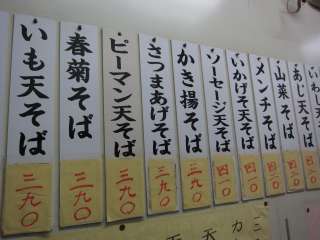 いも天そば
三九〇
春菊そば
三九〇
ピーマン天そば
三九〇
さつまあげそば
三九〇
かき揚そば
三九〇
ソーセージ天そば
四一〇
いかげそ天そば
四一〇
メンチそば
四一〇
山菜そば
四二〇
あじ天そば
いわし天そば
天
カ